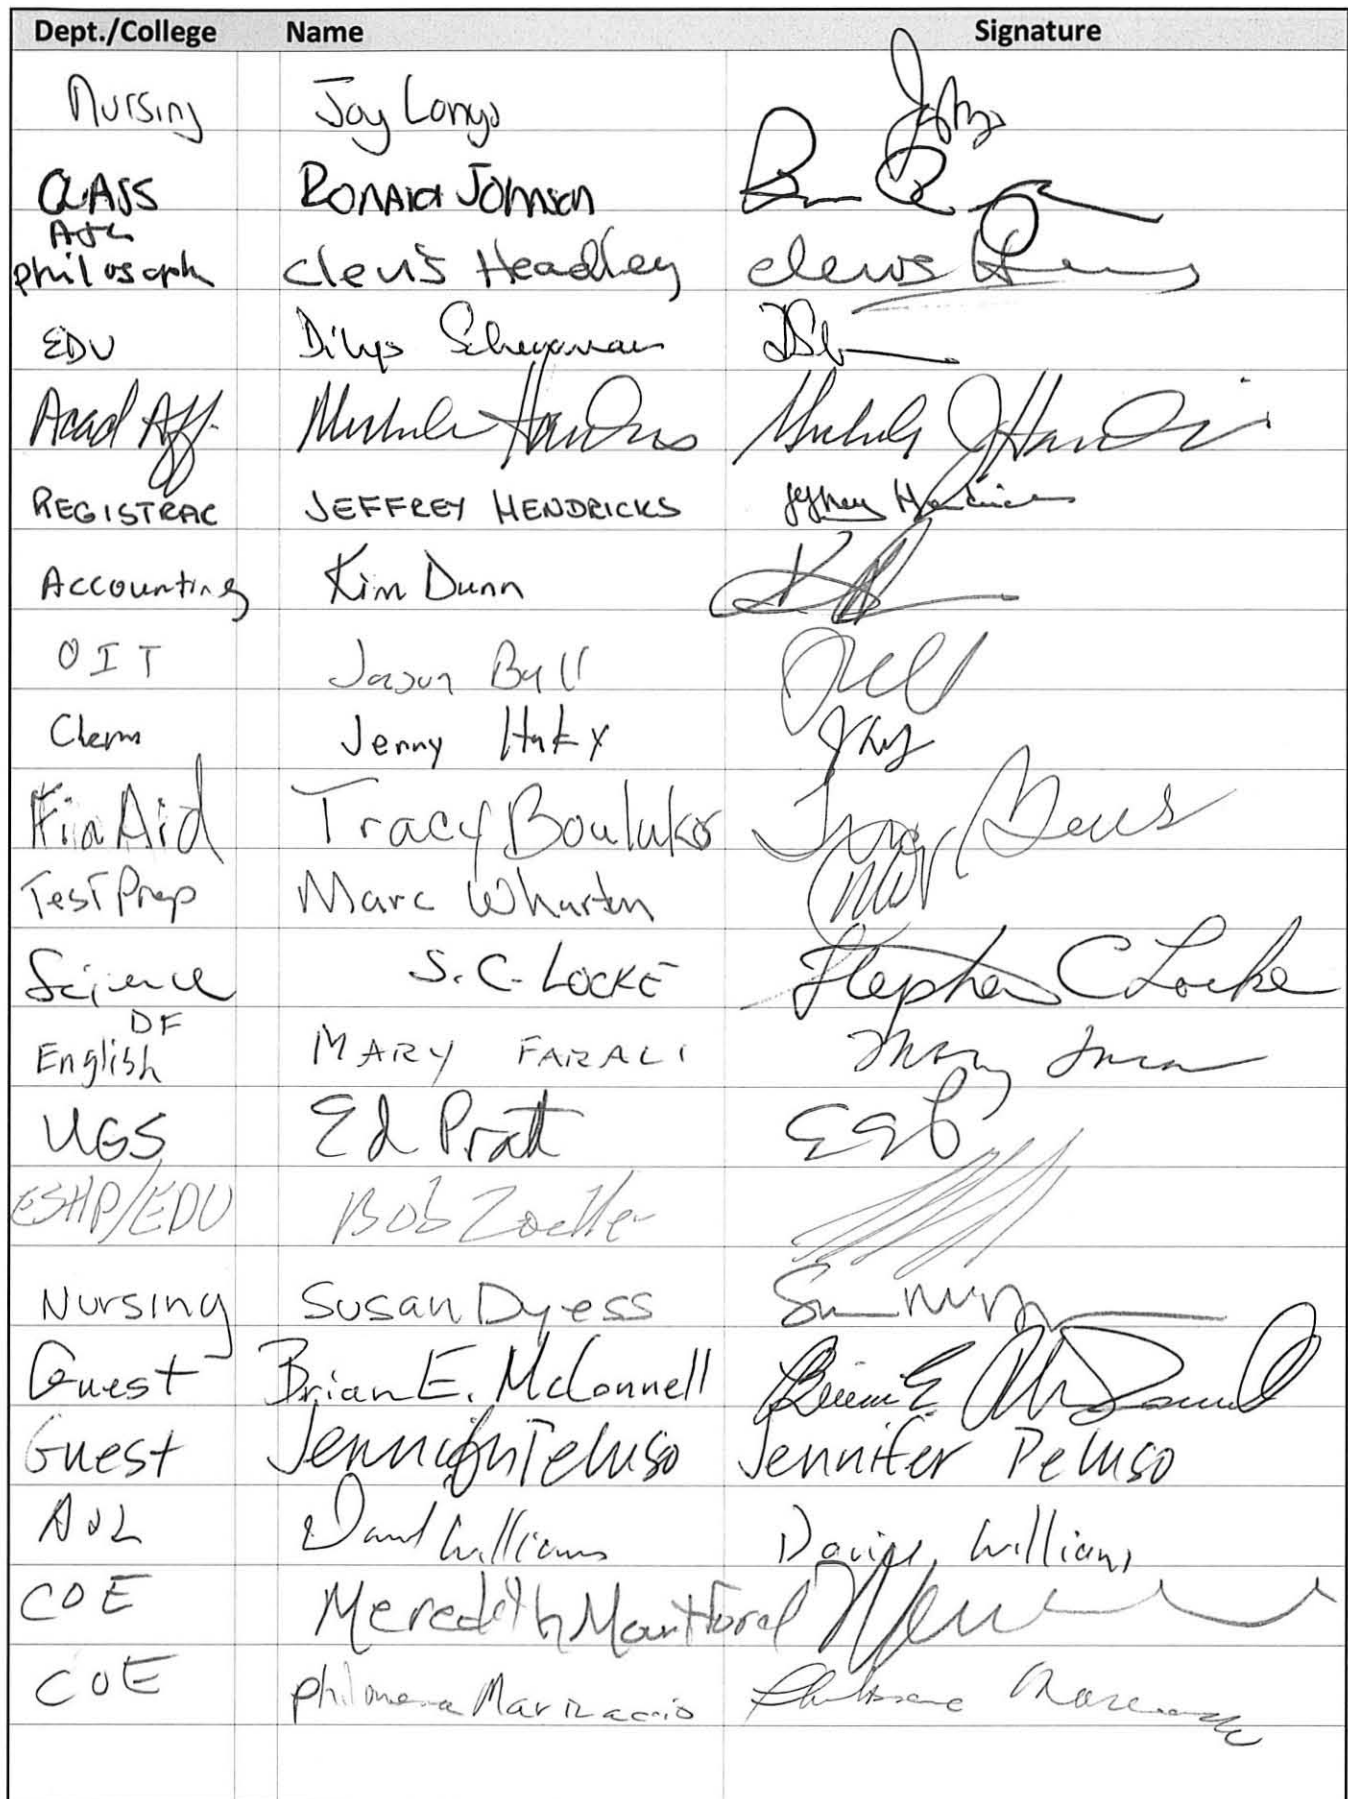 Dept./College Name Signature
Nursing Joy Longo
CLASS Ronald Johnson
A+L
Philosoph Clevis Headley Clevis
EDU Dilys Schoorman
Acad Aff. Michele Hawkins Michele J Hawkins
REGISTRAR JEFFREY HENDRICKS Jeffrey Hendricks
Accounting Kim Dunn
OIT Jason Ball
Chem Jenny
Fin Aid Tracy Boulukos
Test Prep Marc Wharton MW
Science S.C. LOCKE Stephen C Locke
DF
English MARY FARACI Mary
UGS Ed Pratt EEP
ESHP/EDU Bob Zoeller
Nursing Susan Dyess
Guest Brian E. McConnell Brian E McConnell
Guest Jennifer Peluso Jennifer Peluso
A&L David Williams David Williams
COE Meredith Mountford
COE Philomena Marinaccio Philomena Marinaccio